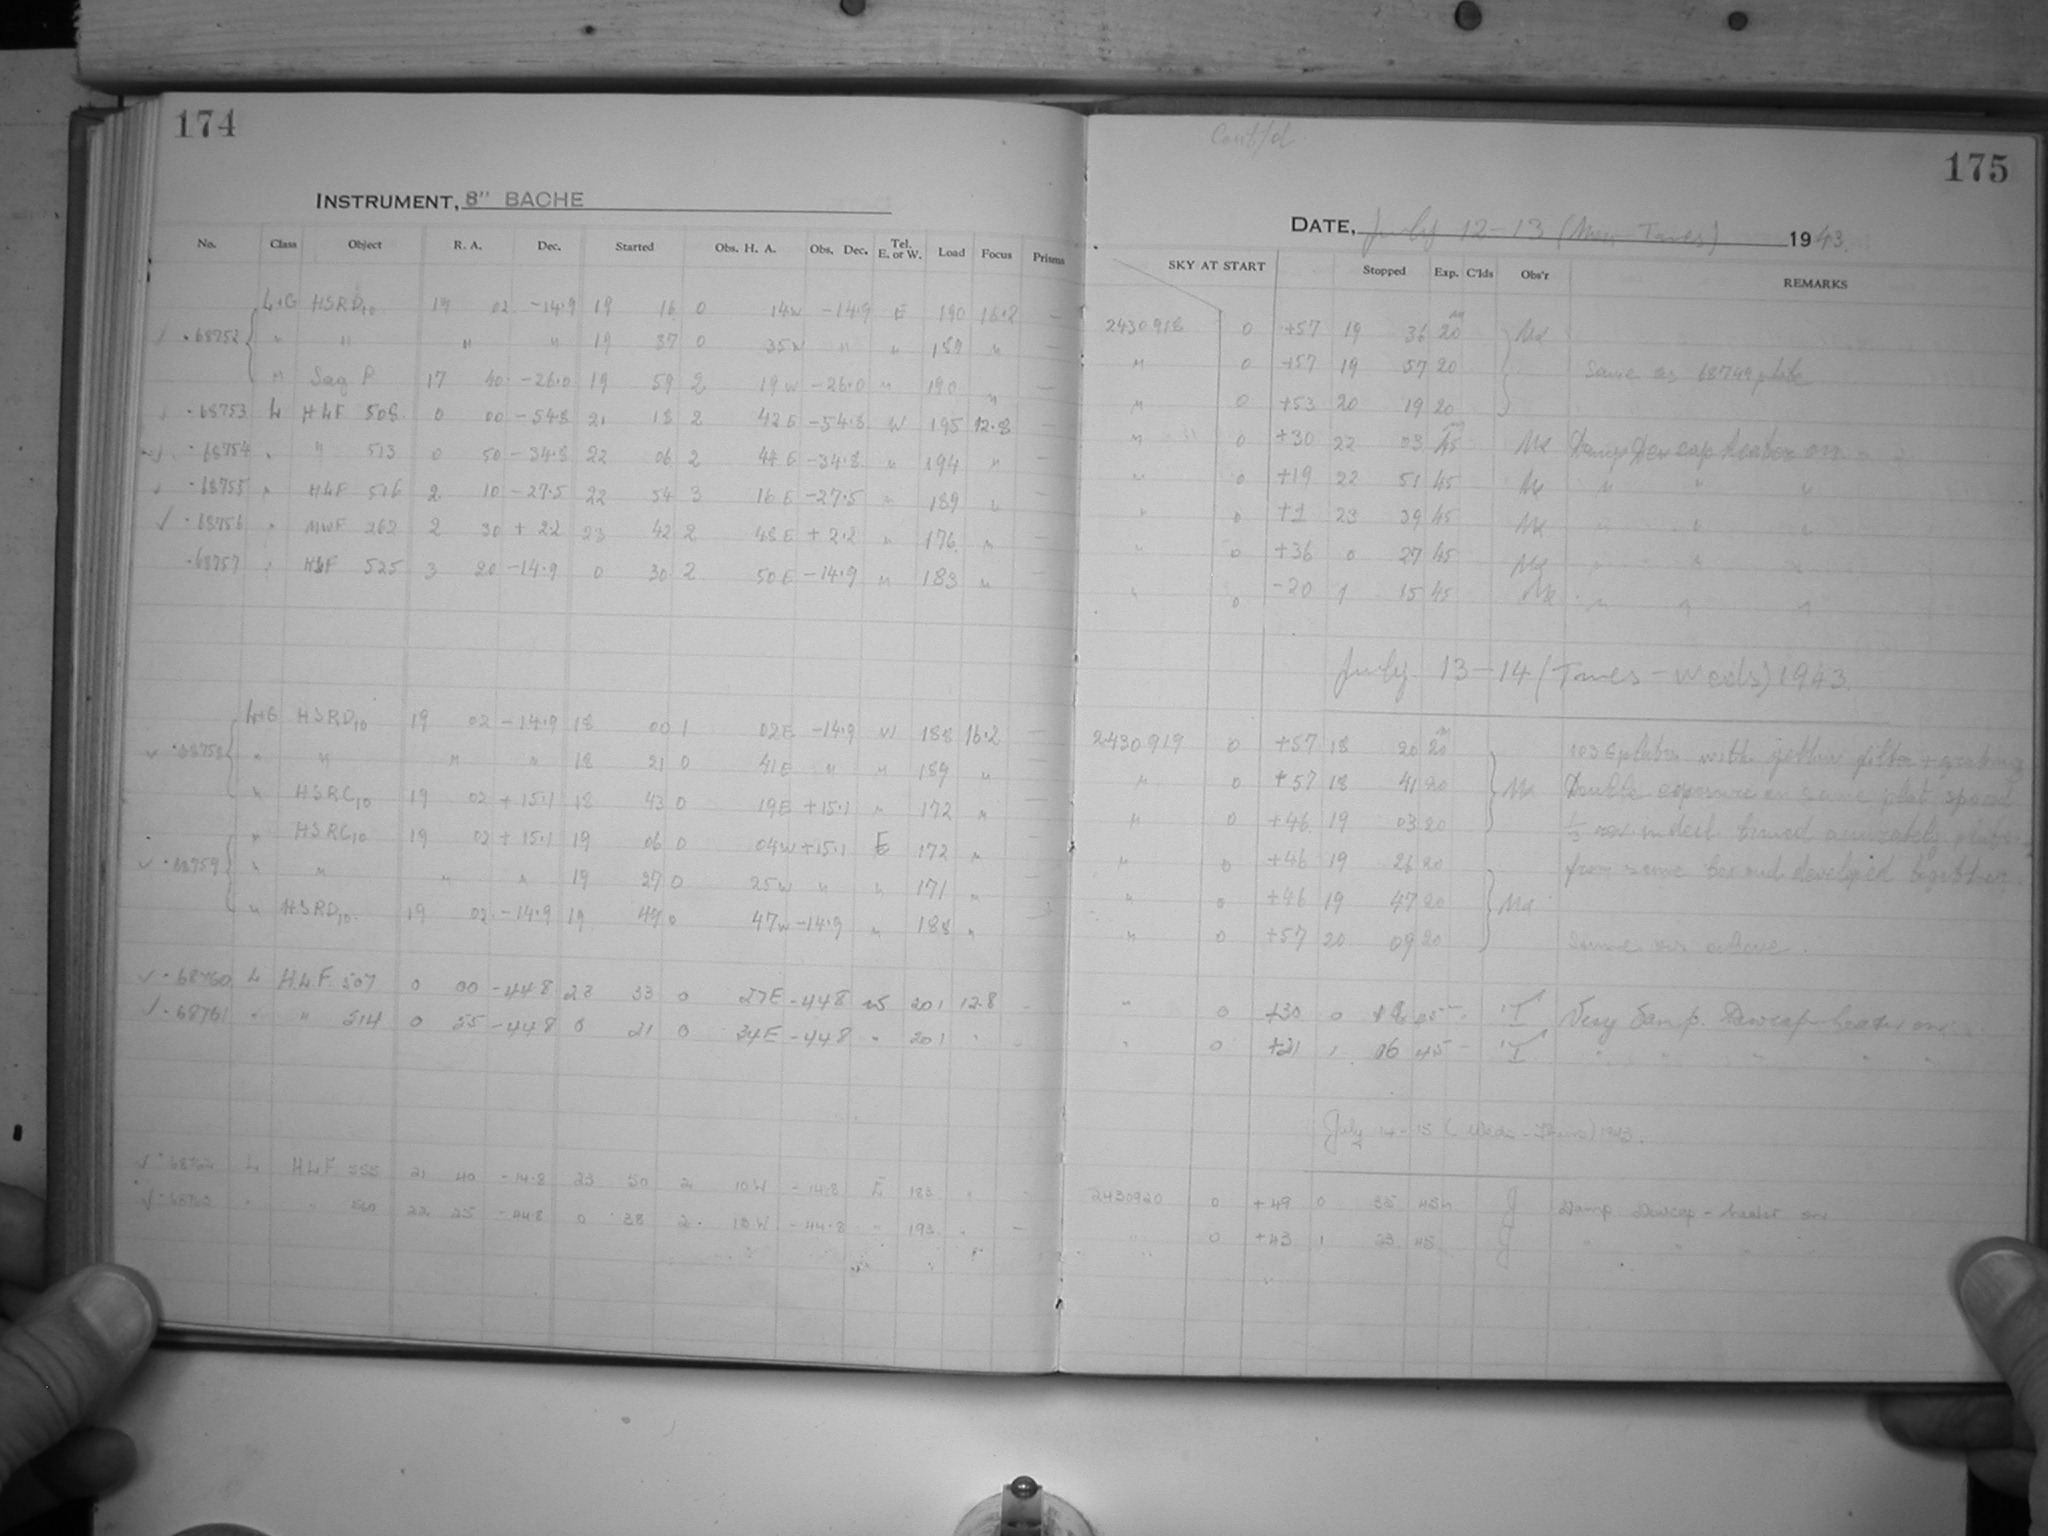 174
INSTRUMENT, 8" BACHE
No. Class Object R. A. Dec. Started Obs. H. A. Obs. Dec. Tel. E. or W. Load Focus Prisms
L+G HSRD10 19 02 -14.9 19 16 0 14W -14.9 E 190 16.2 —
.68752 " " " " 19 37 0 35W " " 189 " —
" Sag P 17 40 -26.0 19 59 2 19W -26.0 " 190 " —
.68753 L HLF 508 0 00 -54.8 21 18 2 42E -54.8 W 195 12.8 —
.68754 " " 513 0 50 -34.8 22 06 2 44E -34.8 " 194 " —
.68755 " HLF 516 2 10 -27.5 22 54 3 16E -27.5 " 189 " —
✓ .68756 " MWF 262 2 30 +2.2 23 42 2 48E +2.2 " 176 " —
.68757 " HLF 525 3 20 -14.9 0 30 2 50E -14.9 " 183 " —
L+G HSRD10 19 02 -14.9 18 00 1 02E -14.9 W 188 16.2 —
✓ .68758 " " " " 18 21 0 41E " " 189 " —
" HSRC10 19 02 +15.1 18 43 0 19E +15.1 " 172 " —
" HSRC10 19 02 +15.1 19 06 0 04W +15.1 E 172 "
✓ .68759 " " " " 19 27 0 25W " " 171 "
" HSRD10 19 02 -14.9 19 49 0 47W -14.9 " 188 "
✓ .68760 L HLF 507 0 00 -44.8 23 33 0 27E -44.8 W 201 12.8
✓ .68761 " " 514 0 55 -44.8 0 21 0 34E -44.8 " 201 "
✓ .68762 L HLF 555 21 40 -14.8 23 50 2 10W -14.8 E 183 "
✓ .68763 " " 560 22 25 -44.8 0 38 2 18W -44.8 " 193 " —
Cont/d
175
DATE, July 12-13 (Mon-Tues) 1943.
SKY AT START Stopped Exp. C'lds Obs'r REMARKS
2430918 0 +57 19 36 20m Ma
" 0 +57 19 57 20 Same as 68749 plate
" 0 +53 20 19 20
" 0 +30 22 03 45m Ma Damp Dewcap heater on
" 0 +19 22 51 45 Ma " " "
" 0 +1 23 39 45 Ma " " "
" 0 +36 0 27 45 Ma " " "
" 0 -20 1 15 45 Ma " " "
July 13-14 (Tues-Weds) 1943.
2430919 0 +57 18 20 20m 103G plates with yellow filter + grating
" 0 +57 18 41 20 Ma Double exposure on same plate spaced
" 0 +46 19 03 20
" 0 +46 19 26 20 from same box and developed together.
" 0 +46 19 47 20 Ma
" 0 +57 20 09 20 Same as above.
" 0 +30 0 18 45 Very Damp. Dewcap heater on.
" 0 +21 1 06 45 " " " "
July 14-15 (Weds-Thurs) 1943.
2430920 0 +49 0 35 45m J Damp Dewcap-heater on
" 0 +43 1 23 45 J " " "